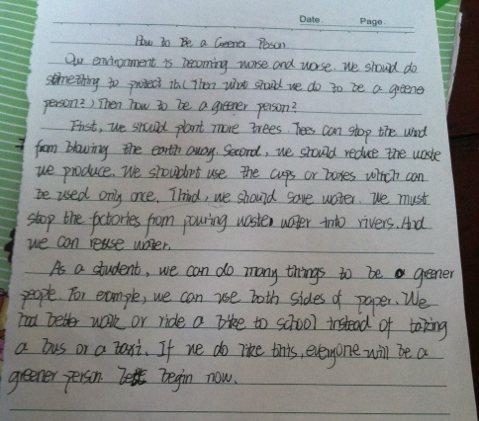 Date. Page.
How to Be a Greener Person
Our environment is becoming worse and worse. We should do
something to protect it. (Then what should we do to be a greener
person?) Then how to be a greener person?
First, we should plant more trees. Trees can stop the wind
from blowing the earth away. Second, we should reduce the waste
we produce. We shouldn't use the cups or boxes which can
be used only once. Third, we should save water. We must
stop the factories from pouring waste water into rivers. And
we can reuse water.
As a student, we can do many things to be a greener
people. For example, we can use both sides of paper. We
had better walk or ride a bike to school instead of taking
a bus or a taxi. If we do like this, everyone will be a
greener person. begin now.